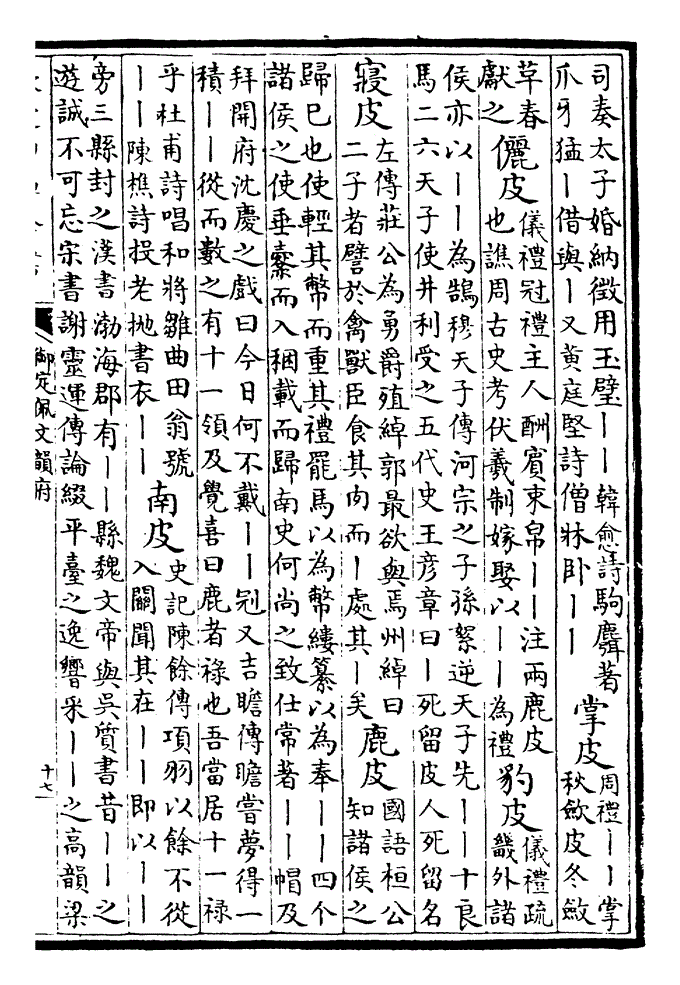 司奏太子婚納徵用玉璧丨丨韓愈詩駒麛著
爪牙猛丨借與丨又黄庭堅詩僧牀卧丨丨
掌皮
周禮丨丨掌
秋歛皮冬斂
草春
獻之
儷皮
儀禮冠禮主人酬賓束帛丨丨注兩鹿皮
也譙周古史考伏羲制嫁娶以丨丨為禮
豹皮
儀禮疏
畿外諸
侯亦以丨丨為鵠穆天子傳河宗之子孫絮逆天子先丨丨十良
馬二六天子使井利受之五代史王彦章曰丨死留皮人死留名
寢皮
左傳莊公為勇爵殖綽郭最欲與焉州綽曰
二子者譬於禽獸臣食其肉而丨處其丨矣
鹿皮
國語桓公
知諸侯之
歸巳也使輕其幣而重其禮罷馬以為幣縷纂以為奉丨丨四个
諸侯之使垂橐而入稛載而歸南史何尚之致仕常著丨丨帽及
拜開府沈慶之戲曰今日何不戴丨丨冠又吉瞻傳瞻嘗夢得一
積丨丨從而數之有十一領及覺喜曰鹿者禄也吾當居十一禄
乎杜甫詩唱和將雛曲田翁號
丨丨陳樵詩投老抛書衣丨丨
南皮
史記陳餘傳項羽以餘不從
入關聞其在丨丨即以丨丨
旁三縣封之漢書渤海郡有丨丨縣魏文帝與吳質書昔丨丨之
遊誠不可忘宋書謝靈運傳論綴平臺之逸響采丨丨之高韻梁
御定佩文韻府
十七